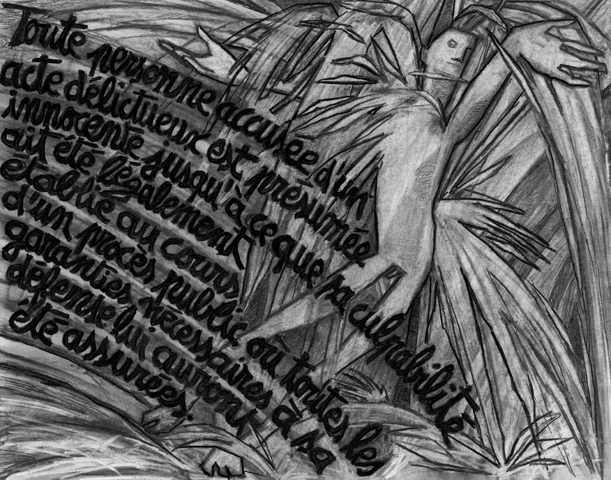 Toute personne accusée d'un
acte délictueux est présumée
innocente jusqu'à ce que sa culpabilité
ait été légalement
établie au cours
d'un procès public où toutes les
garanties nécessaires à sa
défense lui auront
été assurées.